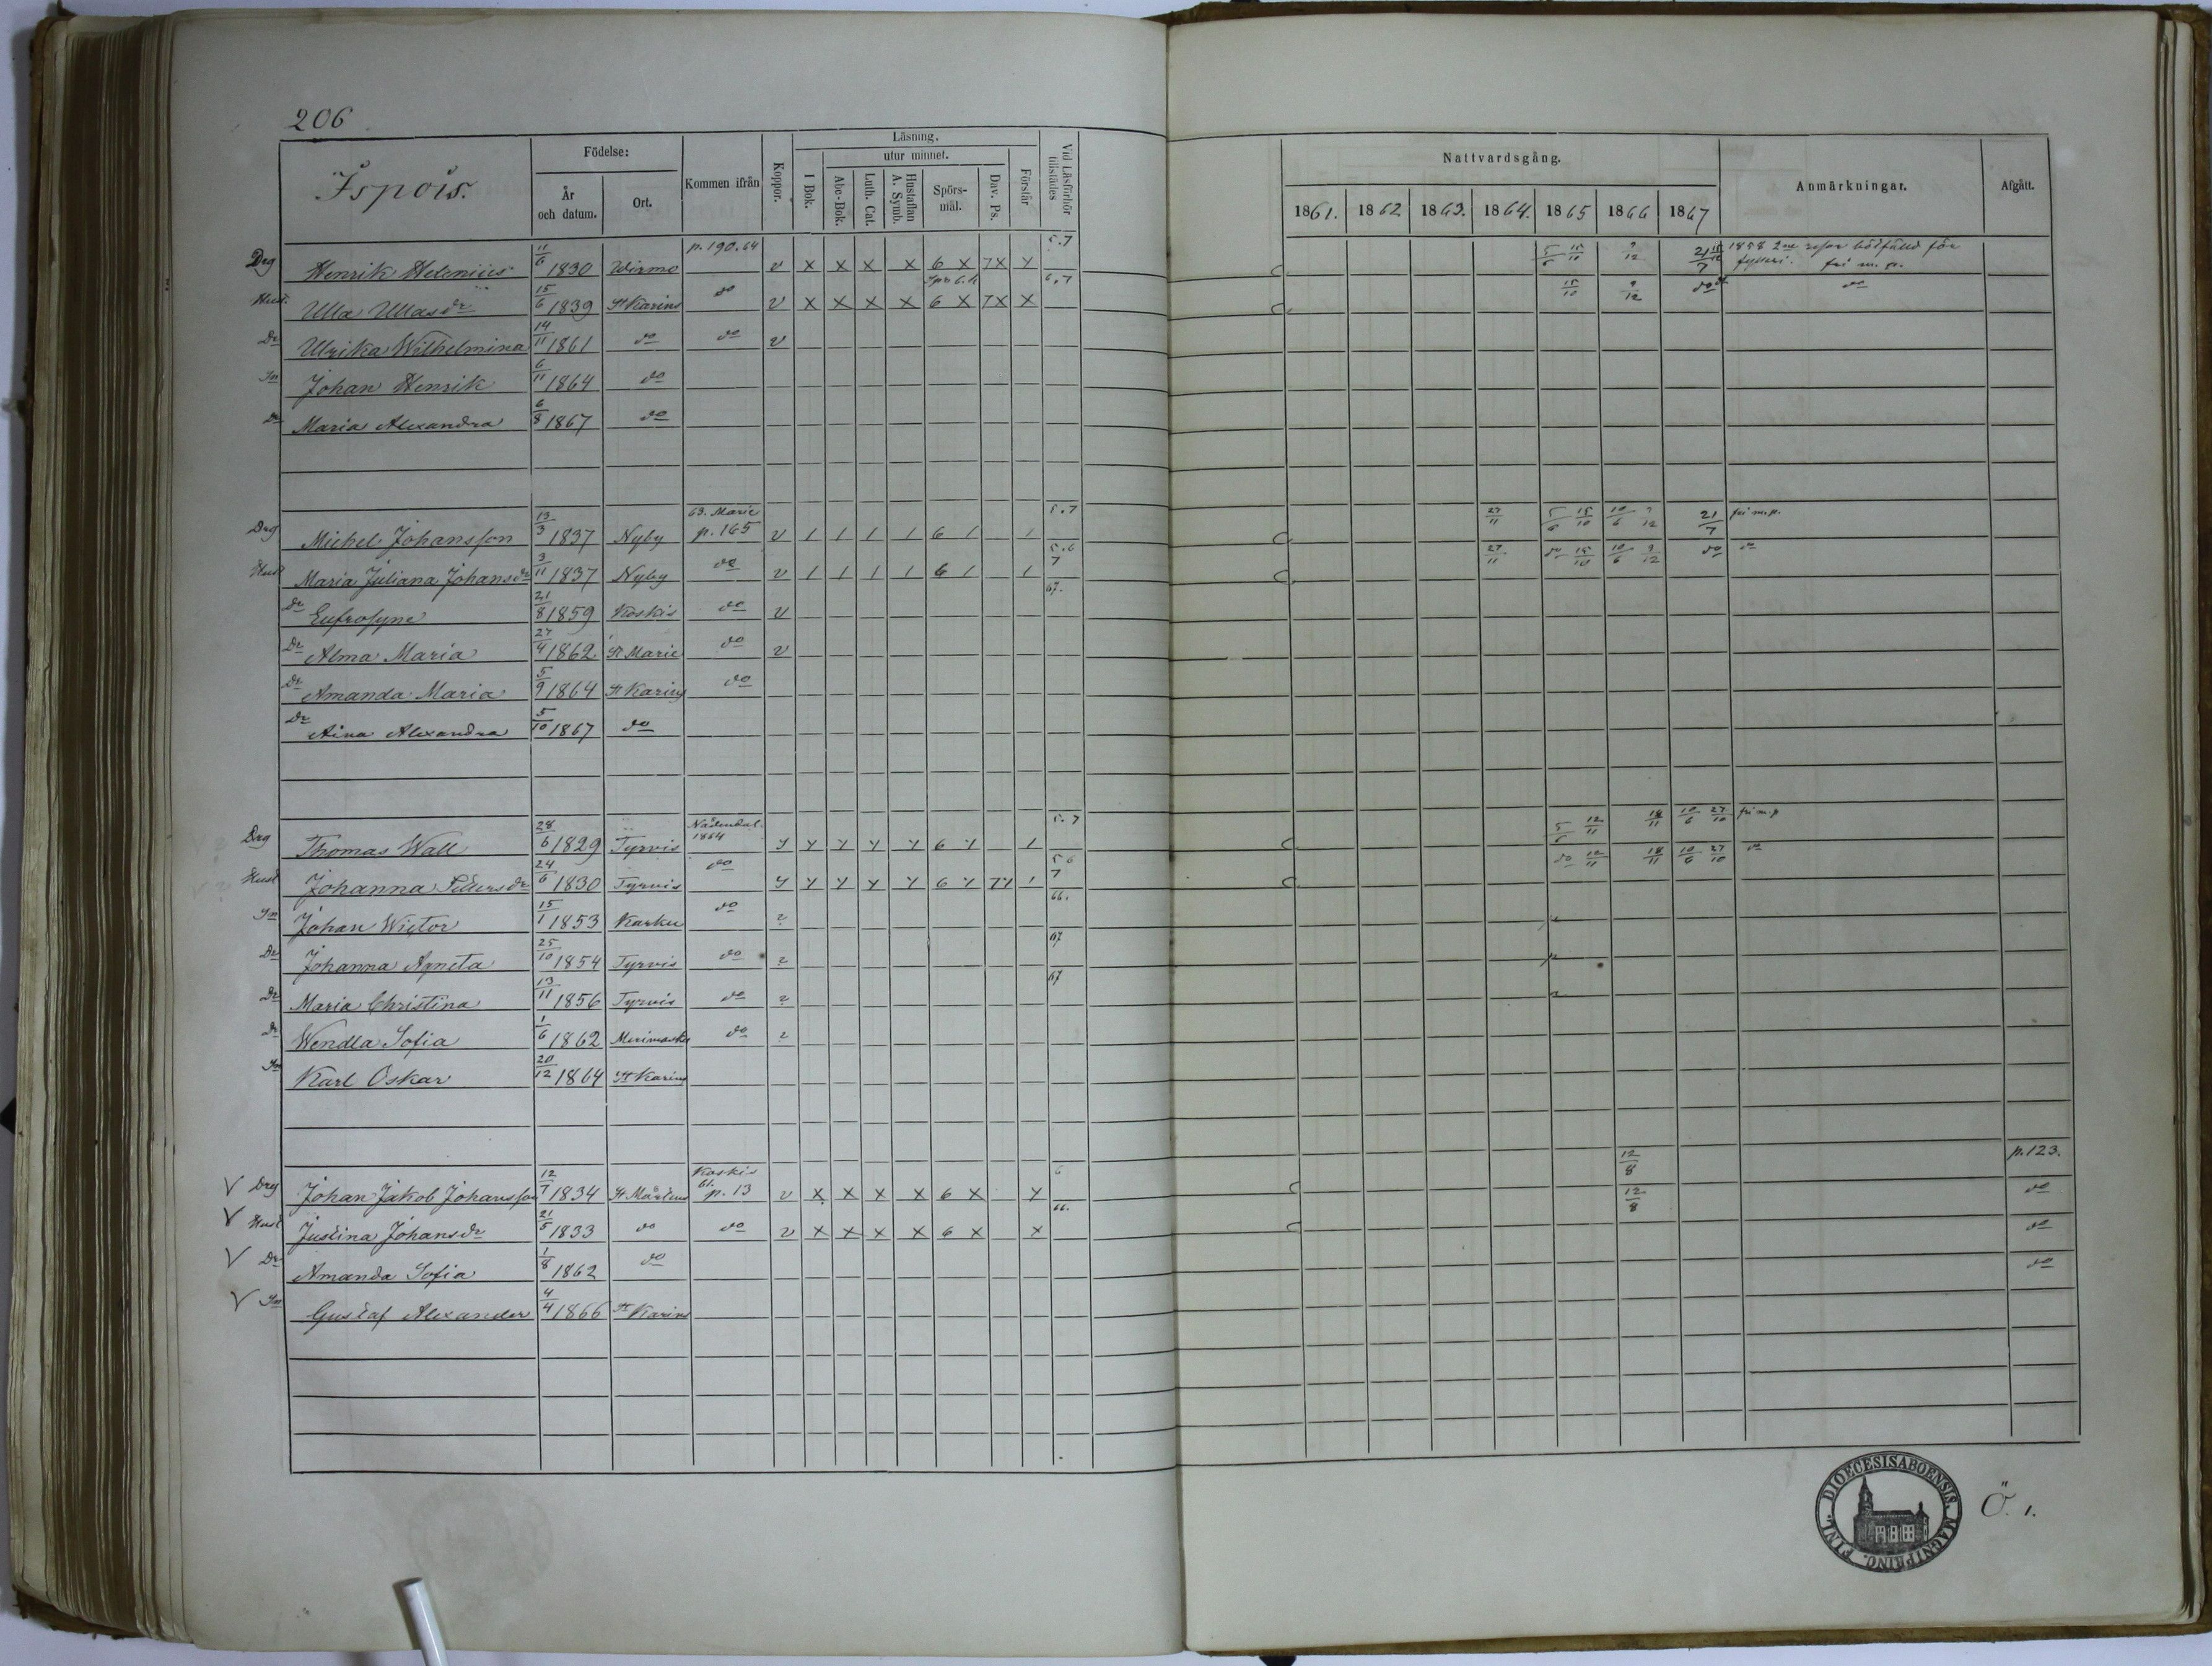 206
Ispois.
Födelse:
År och datum.
Ort.
Kommen ifrån
Koppor.
Läsning.
I Bok.
utur minnet.
Abc-Bok.
Luth. Cat.
Hustaflan A. Symb.
Spörsmål.
Dav. Ps.
Förstår
Vid Läsförhör tillstädes
Nattvardsgång.
1861. 1862 1863. 1864. 1865 1866 1867
Anmärkningar.
Afgått.
Drg Henrik Helenius 11/6 1830 Wirmo p. 190. 64 v X X X X 6 X 7X X 5.7 5/6 15/11 9/12 21/7 1858 2ne fri m. p.
Hust. Ulla Ullasdr 15/6 1839 St Karins do v X X X X 6 X 7X X 6.7 15/10 9/12 do do
Dr Ulrika Wilhelmina 14/11 1861 do do v
Sn Johan Henrik 6/11 1864 do
Dr Maria Alexandra 6/8 1867 do
Drg Michel Johansson 13/3 1837 Nyby 63. Marie p. 165 v / / / / 6 / / 5.7 27/11 5/6 15/10 10/6 9/12 21/7 fri m. p.
Hust Maria Juliana Johansdr 3/11 1837 Nyby do v / / / / 6 / / 5.6 7 27/11 do 15/10 10/6 9/12 do do
Dr Eufrosyne 21/8 1859 Koskis do v 67.
Dr Alma Maria 27/4 1862. St Marie do v
Dr Amanda Maria 5/9 1864 St Karins do
Dr Aina Alexandra 5/10 1867 do
Drg Thomas Wall 28/6 1829 Tyrvis Nådendal 1864 y y y y y 6 y / 5.7 5/6 12/11 18/11 10/6 27/10 fri m. p
Hust Johanna Petersdr 24/6 1830 Tyrvis do y y y y y 6 y 7y / 5 6 7 do 12/11 18/11 10/6 27/10 do
Sn Johan Wictor 15/1 1853 Karku do 2 66.
Dr Johanna Agneta 25/10 1854 Tyrvis do 2 67
Dr Maria Christina 13/11 1856 Tyrvis do 2 67
Dr Wendla Sofia 1/6 1862 Merimasku do 2
Sn Karl Oskar 20/12 1864 St Karins
V Drg Johan Jakob Johansson 12/7 1834 St Mårtens Koskis 61. p. 13 v X X X X 6 X X 6 12/8 p. 123.
V Hust Justina Johansdr 21/5 1833 do do v X X X X 6 X X 66. 12/8 do
V Dr Amanda Sofia 1/8 1862 do do
V Sn Gustaf Alexander 4/4 1866 St Karins do
DIOECESIS ABOENSIS. MAGNI PRINC. FINL.
Ö. 1.